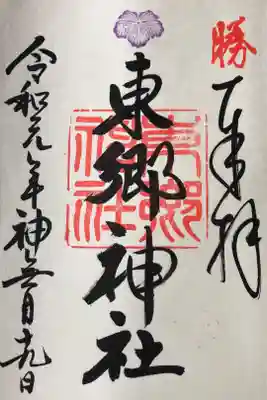 勝
奉拝
東郷神社
東郷
神社
令和元年神無月十九日